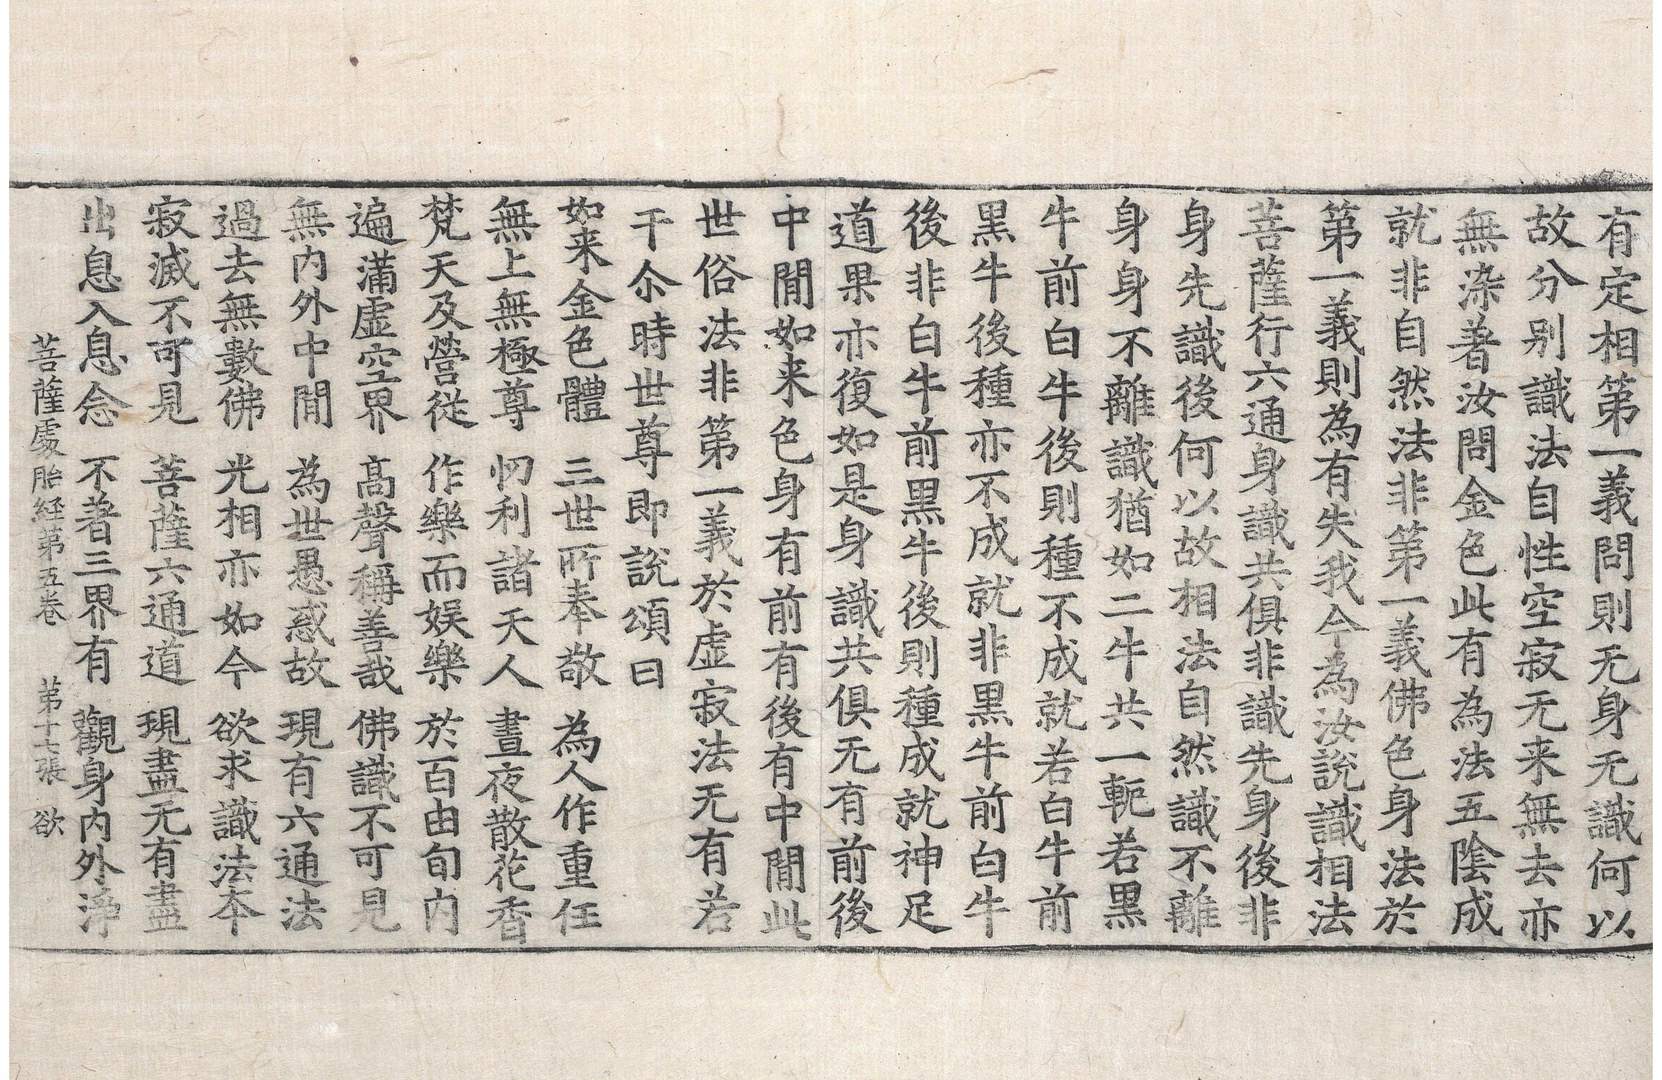 有定相第一義問則无身无識何以
故分别識法自性空寂无来無去亦
無染著汝問金色此有為法五陰成
就非自然法非第一義佛色身法於
第一義則為有失我今為汝説識相法
菩薩行六通身識共俱非識先身後非
身先識後何以故相法自然識不離
身身不離識猶如二牛共一軛若黒
牛前白牛後則種不成就若白牛前
黒牛後種亦不成就非黒牛前白牛
後非白牛前黒牛後則種成就神足
道果亦復如是身識共俱无有前後
中閒如来色身有前有後有中閒此
世俗法非第一義於虛寂法无有若
干尒時世尊即說頌曰
如来金色體　三世所奉敬　為人作重任
無上無極尊　忉利諸天人　晝夜散花香
梵天及營從　作樂而娱樂　於百由旬内
遍滿虛空界　髙聲稱善哉　佛識不可見
無内外中閒　為世愚惑故　現有六通法
過去無數佛　光相亦如今　欲求識法夲
寂滅不可見　菩薩六通道　現盡无有盡
出息入息念　不著三界有　觀身内外淨
菩薩處胎経第五卷　第十七張　欲